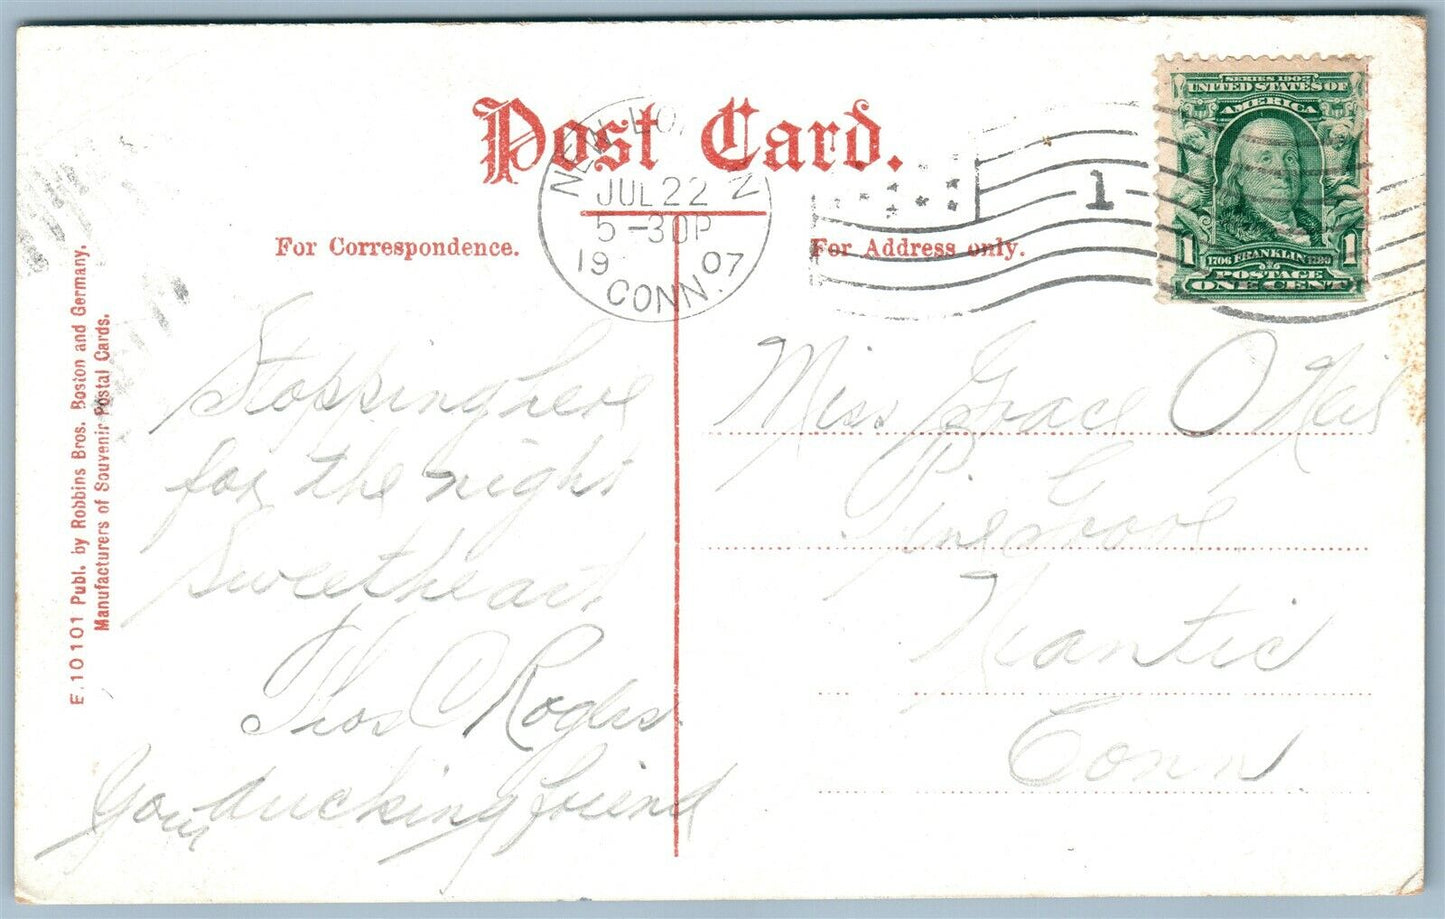 Post Card.
For Correspondence.
For Address only.
NEW LONDON
JUL 22
5-30P
1907
CONN.
1
SERIES 1902
UNITED STATES OF
AMERICA
1706 FRANKLIN 1790
POSTAGE
1 1
ONE CENT
E.10101 Publ. by Robbins Bros. Boston and Germany.
Manufacturers of Souvenir Postal Cards.
Stopping here
for the night
Sweetheart
Thos C Rogers
Your ducking friend
Miss Grace O Neil
Pine Grove
Niantic
Conn